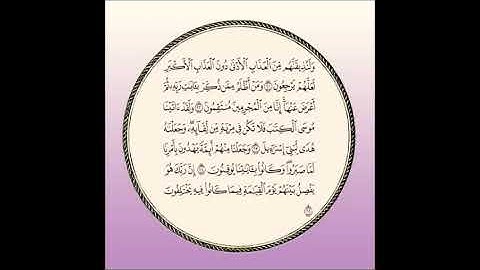 وَلَنُذِيقَنَّهُم مِّنَ الْعَذَابِ الْأَدْنَىٰ دُونَ الْعَذَابِ الْأَكْبَرِ
لَعَلَّهُمْ يَرْجِعُونَ ﴿٢١﴾ وَمَنْ أَظْلَمُ مِمَّن ذُكِّرَ بِـَٔايَٰتِ رَبِّهِۦ ثُمَّ
أَعْرَضَ عَنْهَآ ۚ إِنَّا مِنَ الْمُجْرِمِينَ مُنتَقِمُونَ ﴿٢٢﴾ وَلَقَدْ ءَاتَيْنَا
مُوسَى الْكِتَٰبَ فَلَا تَكُن فِى مِرْيَةٍ مِّن لِّقَآئِهِۦ ۖ وَجَعَلْنَٰهُ
هُدًى لِّبَنِىٓ إِسْرَٰٓءِيلَ ﴿٢٣﴾ وَجَعَلْنَا مِنْهُمْ أَئِمَّةً يَهْدُونَ بِأَمْرِنَا
لَمَّا صَبَرُوا۟ ۖ وَكَانُوا۟ بِـَٔايَٰتِنَا يُوقِنُونَ ﴿٢٤﴾ إِنَّ رَبَّكَ هُوَ
يَفْصِلُ بَيْنَهُمْ يَوْمَ الْقِيَٰمَةِ فِيمَا كَانُوا۟ فِيهِ يَخْتَلِفُونَ
﴿٢٥﴾